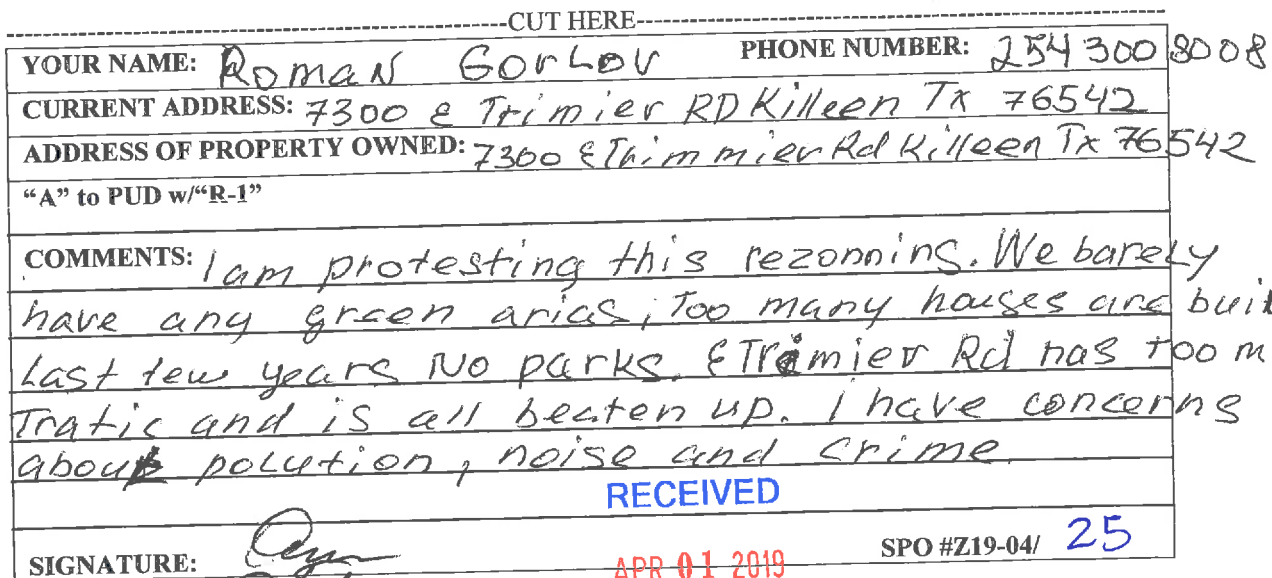 CUT HERE
YOUR NAME: Roman Gorlov PHONE NUMBER: 254 300 8008
CURRENT ADDRESS: 7300 E Trimier RD Killeen Tx 76542
ADDRESS OF PROPERTY OWNED: 7300 E Trimmier Rd Killeen Tx 76542
"A" to PUD w/"R-1"
COMMENTS: I am protesting this rezonning. We barely
have any green arias, Too many houses are buil
Last few years No parks. E Trimier Rd has too m
Trafic and is all beaten up. I have concerns
about polution, noise and crime
RECEIVED
SIGNATURE: SPO #Z19-04/ 25
APR 01 2019